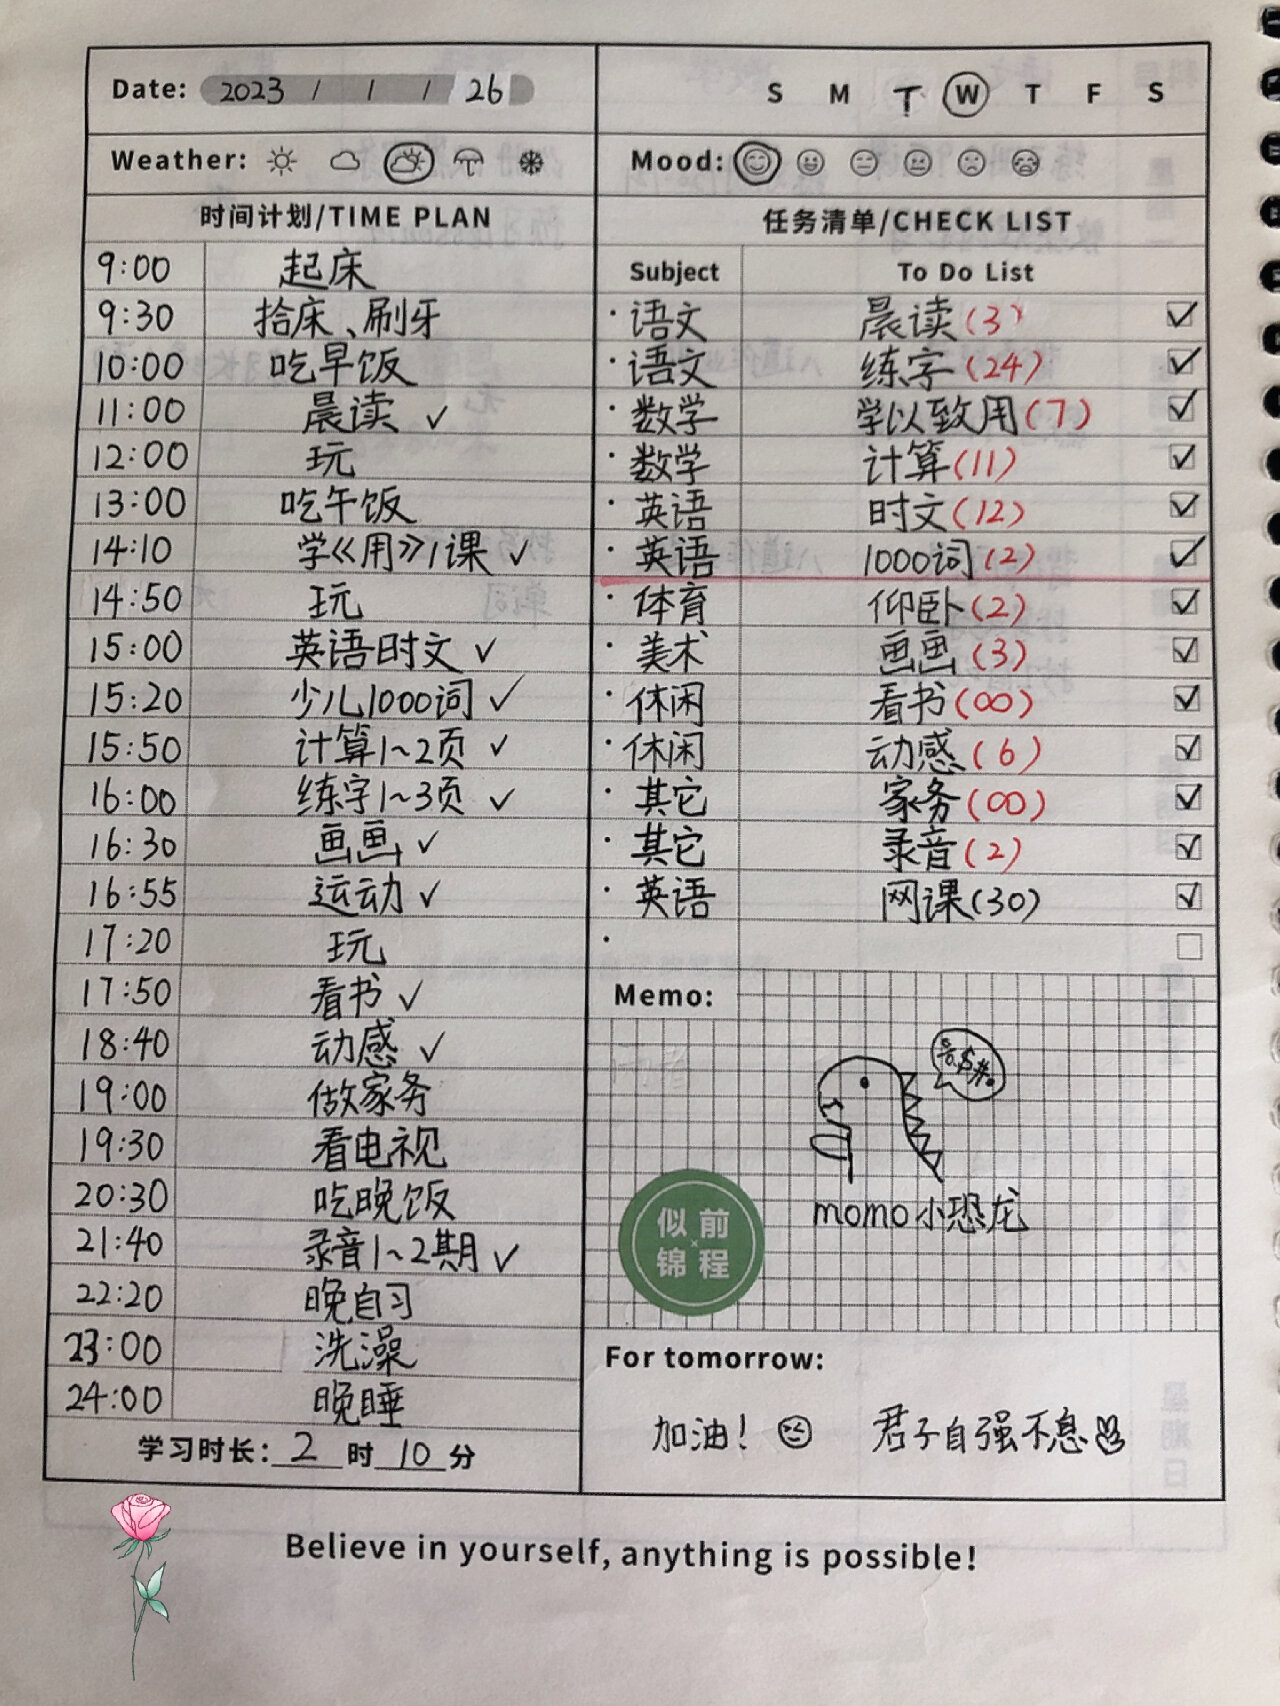 Date: 2023 / 1 / 26
S M T W T F S
Weather:
Mood:
时间计划/TIME PLAN
9:00 起床
9:30 拾床、刷牙
10:00 吃早饭
11:00 晨读 ✓
12:00 玩
13:00 吃午饭
14:10 学《用》1课 ✓
14:50 玩
15:00 英语时文 ✓
15:20 少儿1000词 ✓
15:50 计算1~2页 ✓
16:00 练字1~3页 ✓
16:30 画画 ✓
16:55 运动 ✓
17:20 玩
17:50 看书 ✓
18:40 动感 ✓
19:00 做家务
19:30 看电视
20:30 吃晚饭
21:40 录音1~2期 ✓
22:20 晚自习
23:00 洗澡
24:00 晚睡
学习时长: 2 时 10 分
任务清单/CHECK LIST
Subject To Do List
·语文 晨读(3) ✓
·语文 练字(24) ✓
·数学 学以致用(7) ✓
·数学 计算(11) ✓
·英语 时文(12) ✓
·英语 1000词(2) ✓
·体育 仰卧(2) ✓
·美术 画画(3) ✓
·休闲 看书(00) ✓
·休闲 动感(6) ✓
·其它 家务(00) ✓
·其它 录音(2) ✓
·英语 网课(30) ✓
·
Memo:
momo小恐龙
似 前
锦 程
For tomorrow:
加油! 君子自强不息
Believe in yourself, anything is possible!